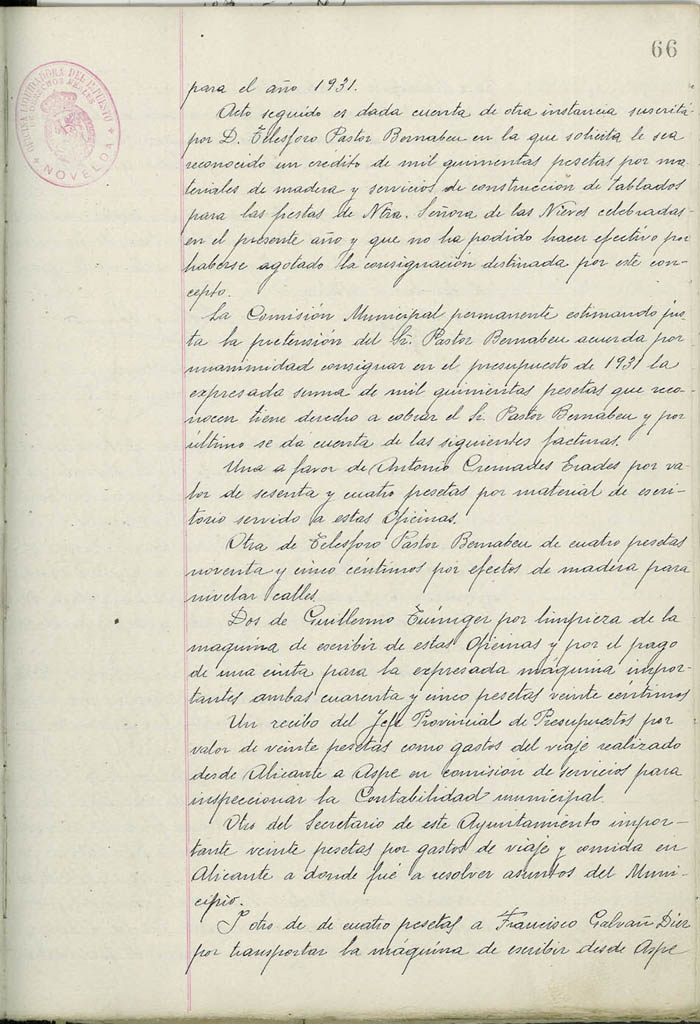 66
OFICINA LIQUIDADORA DEL IMPUESTO
DE DERECHOS REALES
NOVELDA
para el año 1931.
Acto seguido es dada cuenta de otra instancia suscrita
por D. Telesforo Pastor Bernabeu en la que solicita le sea
reconocido un credito de mil quinientas pesetas por ma-
teriales de madera y servicios de construccion de tablados
para las fiestas de Ntra. Señora de las Nieves celebradas
en el presente año y que no ha podido hacer efectivo por
haberse agotado la consignación destinada por este con-
cepto.
La Comisión Municipal permanente estimando jus-
ta la pretensión del Sr. Pastor Bernabeu acuerda por
unanimidad consignar en el presupuesto de 1931 la
expresada suma de mil quinientas pesetas que reco-
nocen tiene derecho a cobrar el Sr. Pastor Bernabeu y por
último se da cuenta de las siguientes facturas.
Una a favor de Antonio Cremades Erades por va-
lor de sesenta y cuatro pesetas por material de escri-
torio servido a estas Oficinas.
Otra de Telesforo Pastor Bernabeu de cuatro pesetas
noventa y cinco céntimos por efectos de madera para
nivelar calles.
Dos de Guillermo por limpieza de la
maquina de escribir de estas Oficinas y por el pago
de una cinta para la expresada máquina impor-
tantes ambas cuarenta y cinco pesetas veinte centimos
Un recibo del Jefe Provincial de Presupuestos por
valor de veinte pesetas como gastos del viaje realizado
desde Alicante a Aspe en comision de servicios para
inspeccionar la Contabilidad municipal.
Otro del Secretario de este Ayuntamiento impor-
tante veinte pesetas por gastos de viaje y comida en
Alicante a donde fué a resolver asuntos del Muni-
cipio.
Y otro de de cuatro pesetas a Francisco Galvañ Diez
por transportar la máquina de escribir desde Aspe